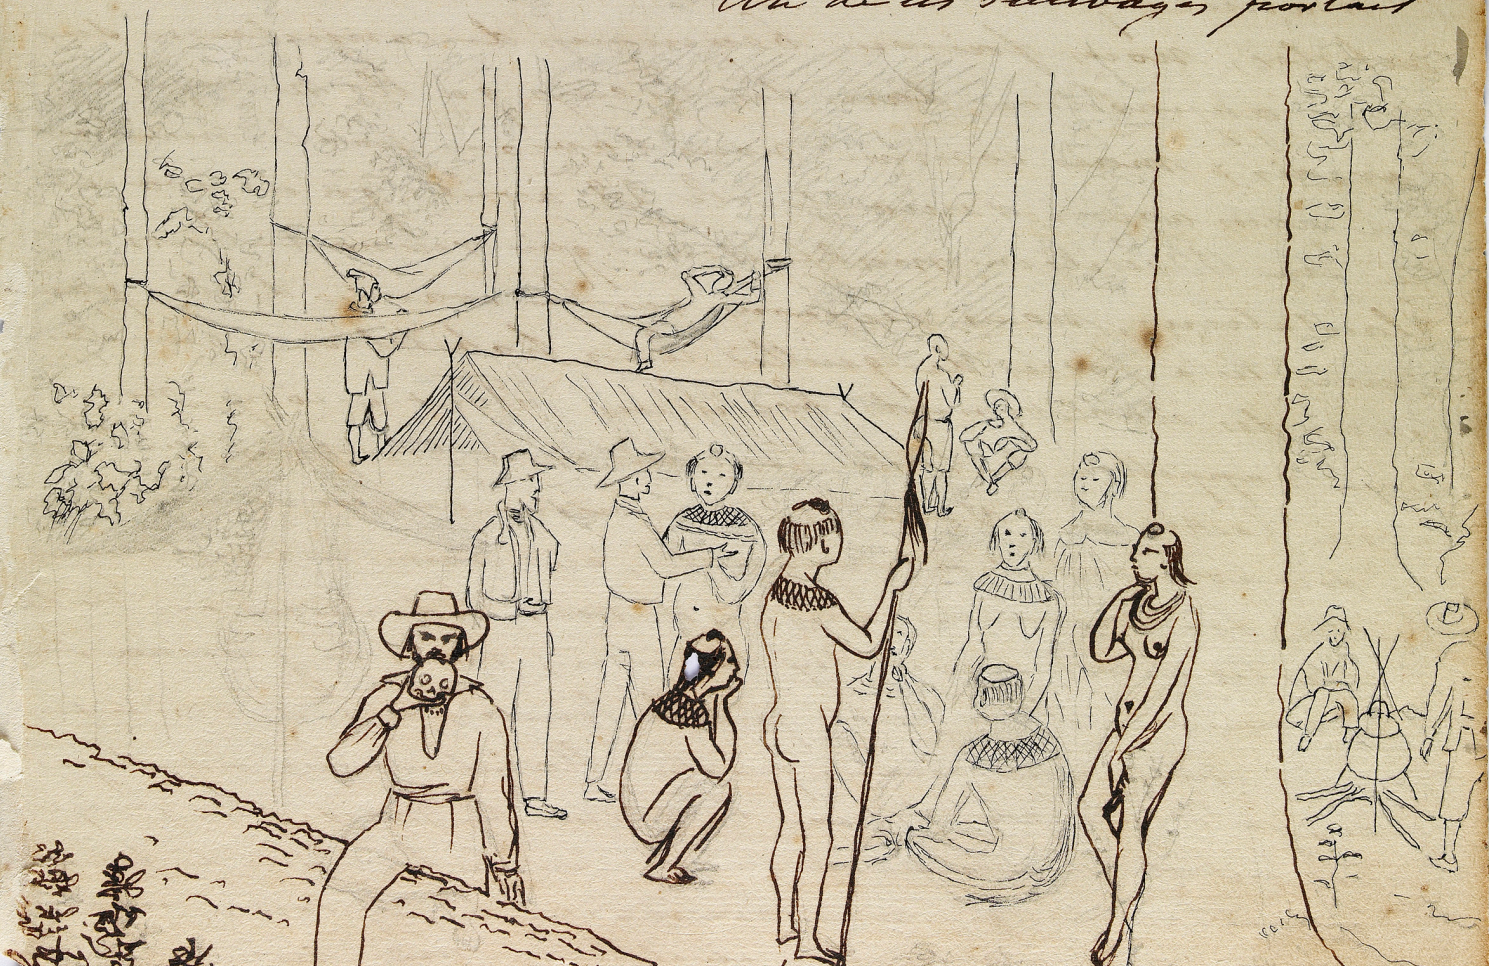 Un de ces sauvages portait